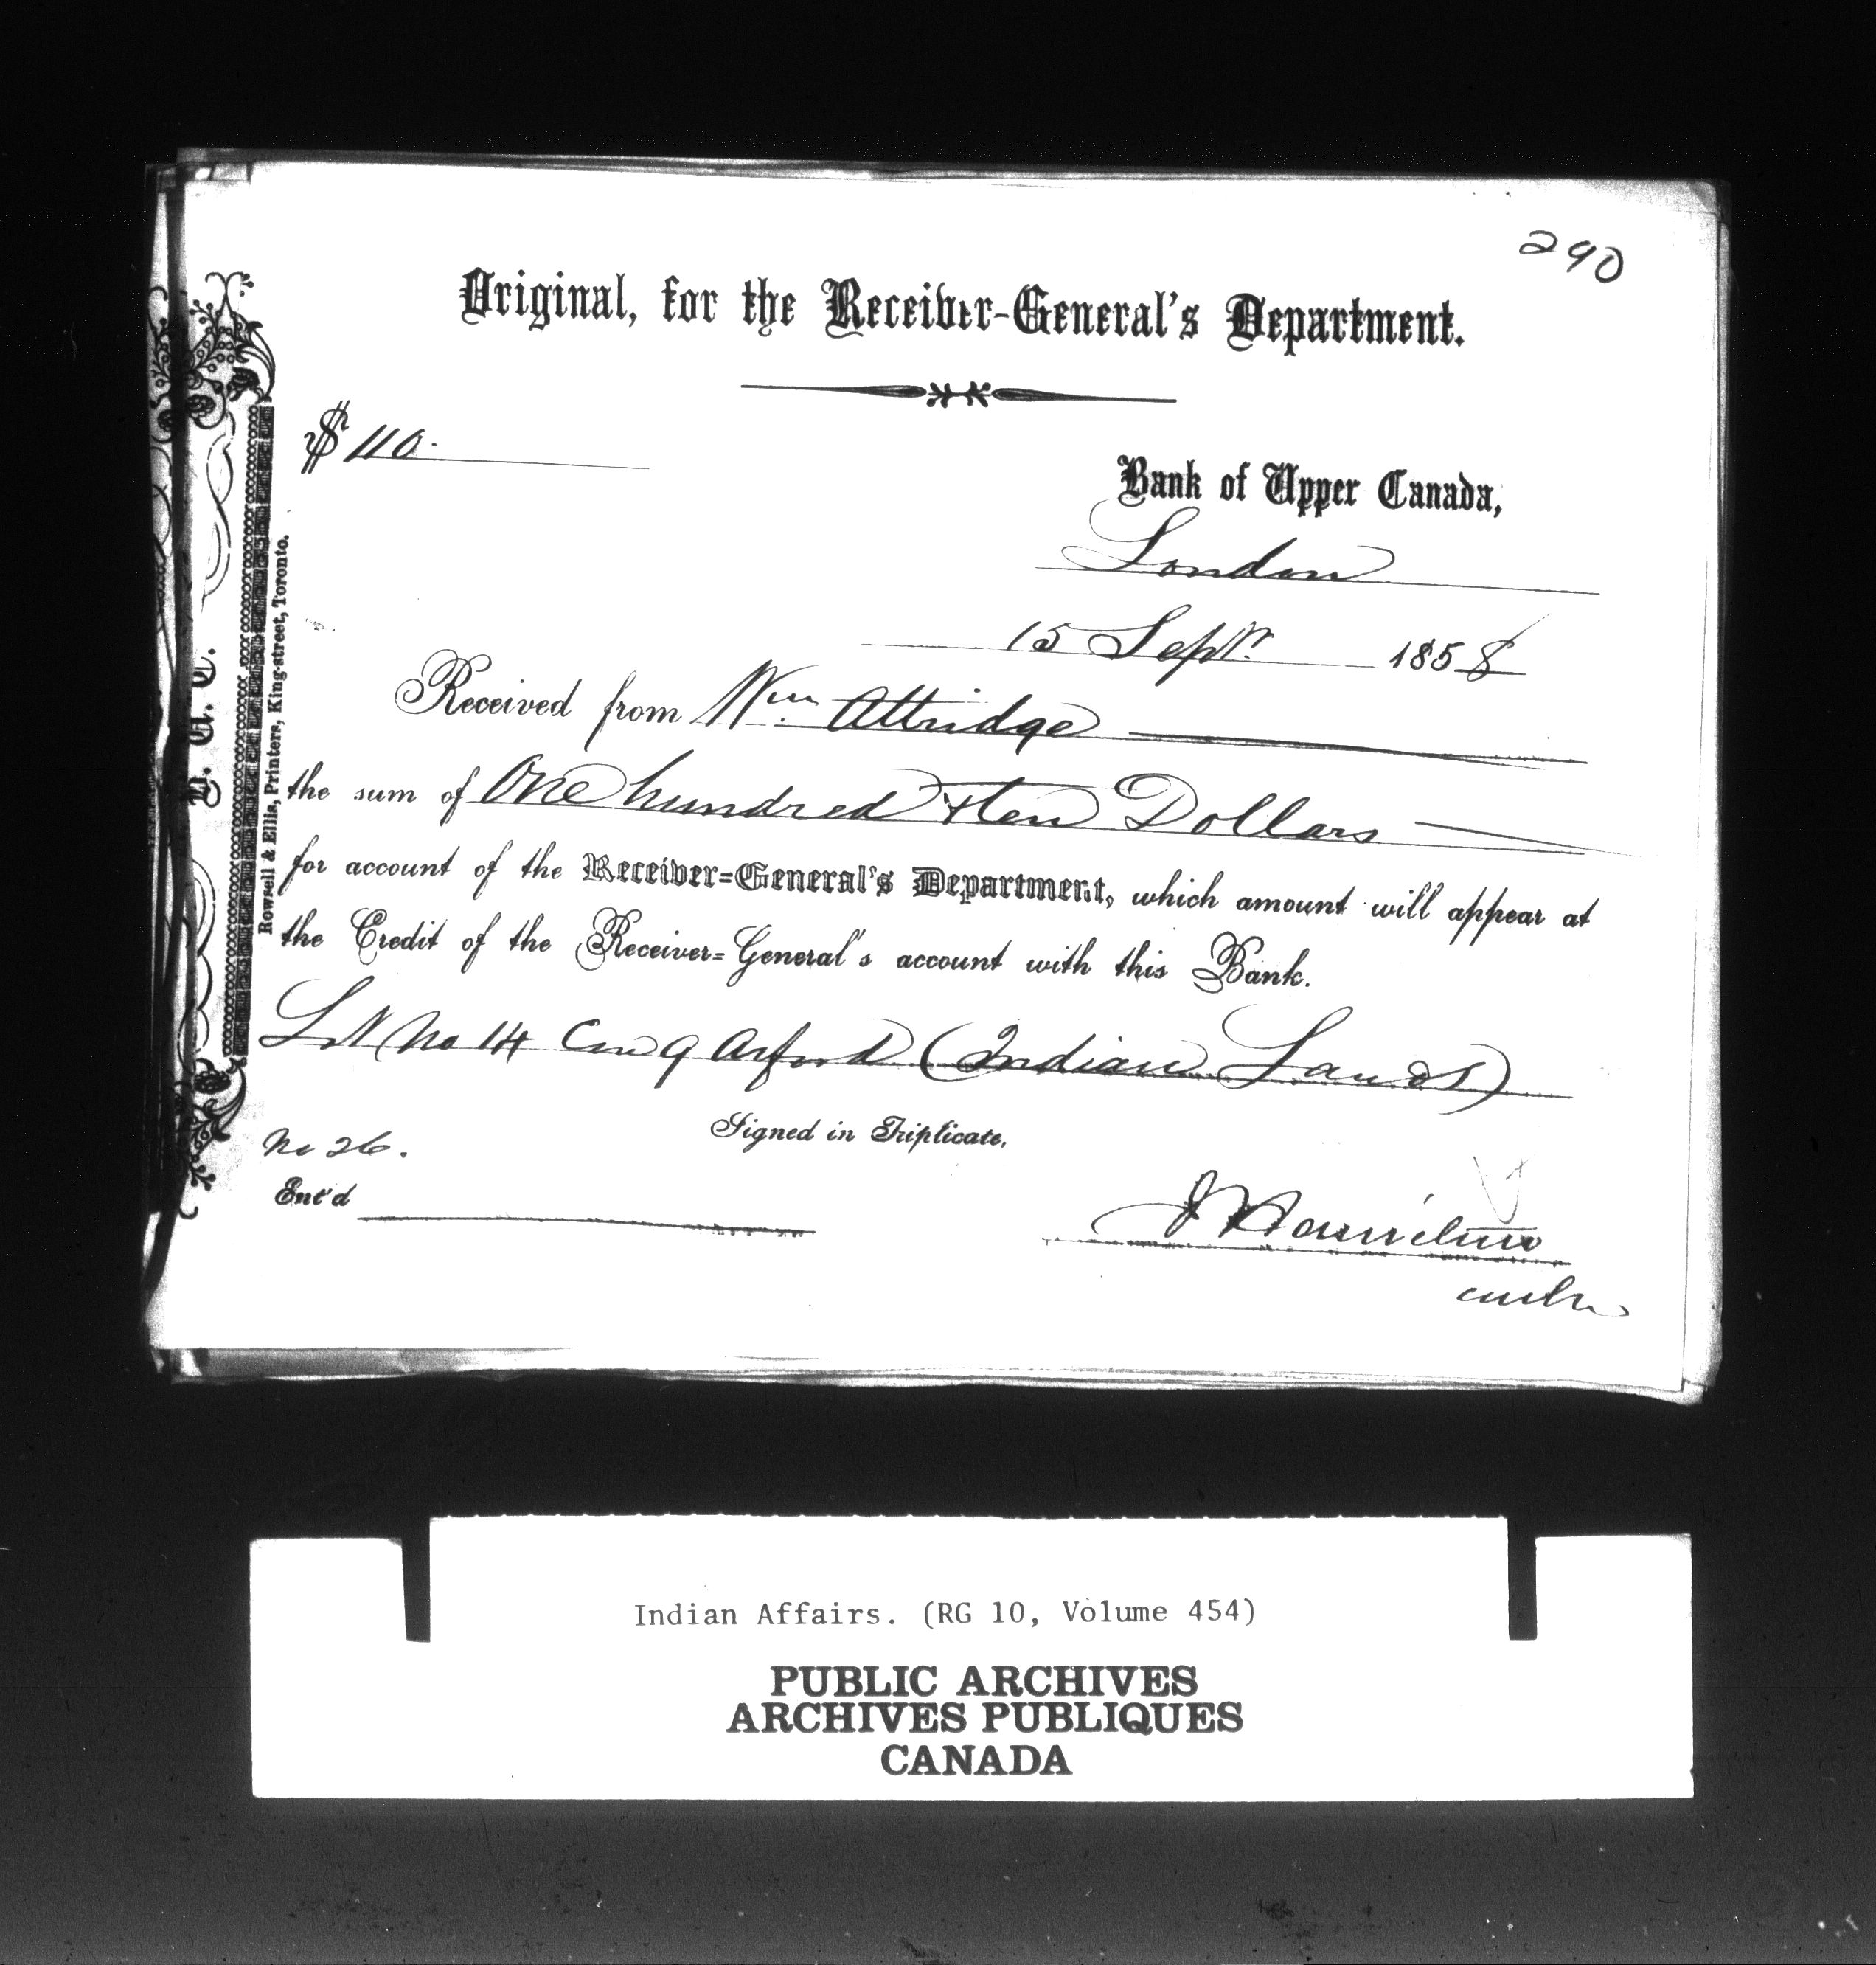 290
Original, for the Receiver-General's Department.
$110.
Bank of Upper Canada,
London
15 Sept. 1858
Received from Wm Attridge
the sum of One hundred & ten Dollars
for account of the Receiver=General's Department, which amount will appear at
the Credit of the Receiver=General's account with this Bank.
Lot No 14 Con 9 Arford (Indian Lands)
Signed in Triplicate,
No 26.
Ent'd
J Hamilton
B. U. C.
Rowsell & Ellis, Printers, King-street, Toronto.
Indian Affairs. (RG 10, Volume 454)
PUBLIC ARCHIVES
ARCHIVES PUBLIQUES
CANADA